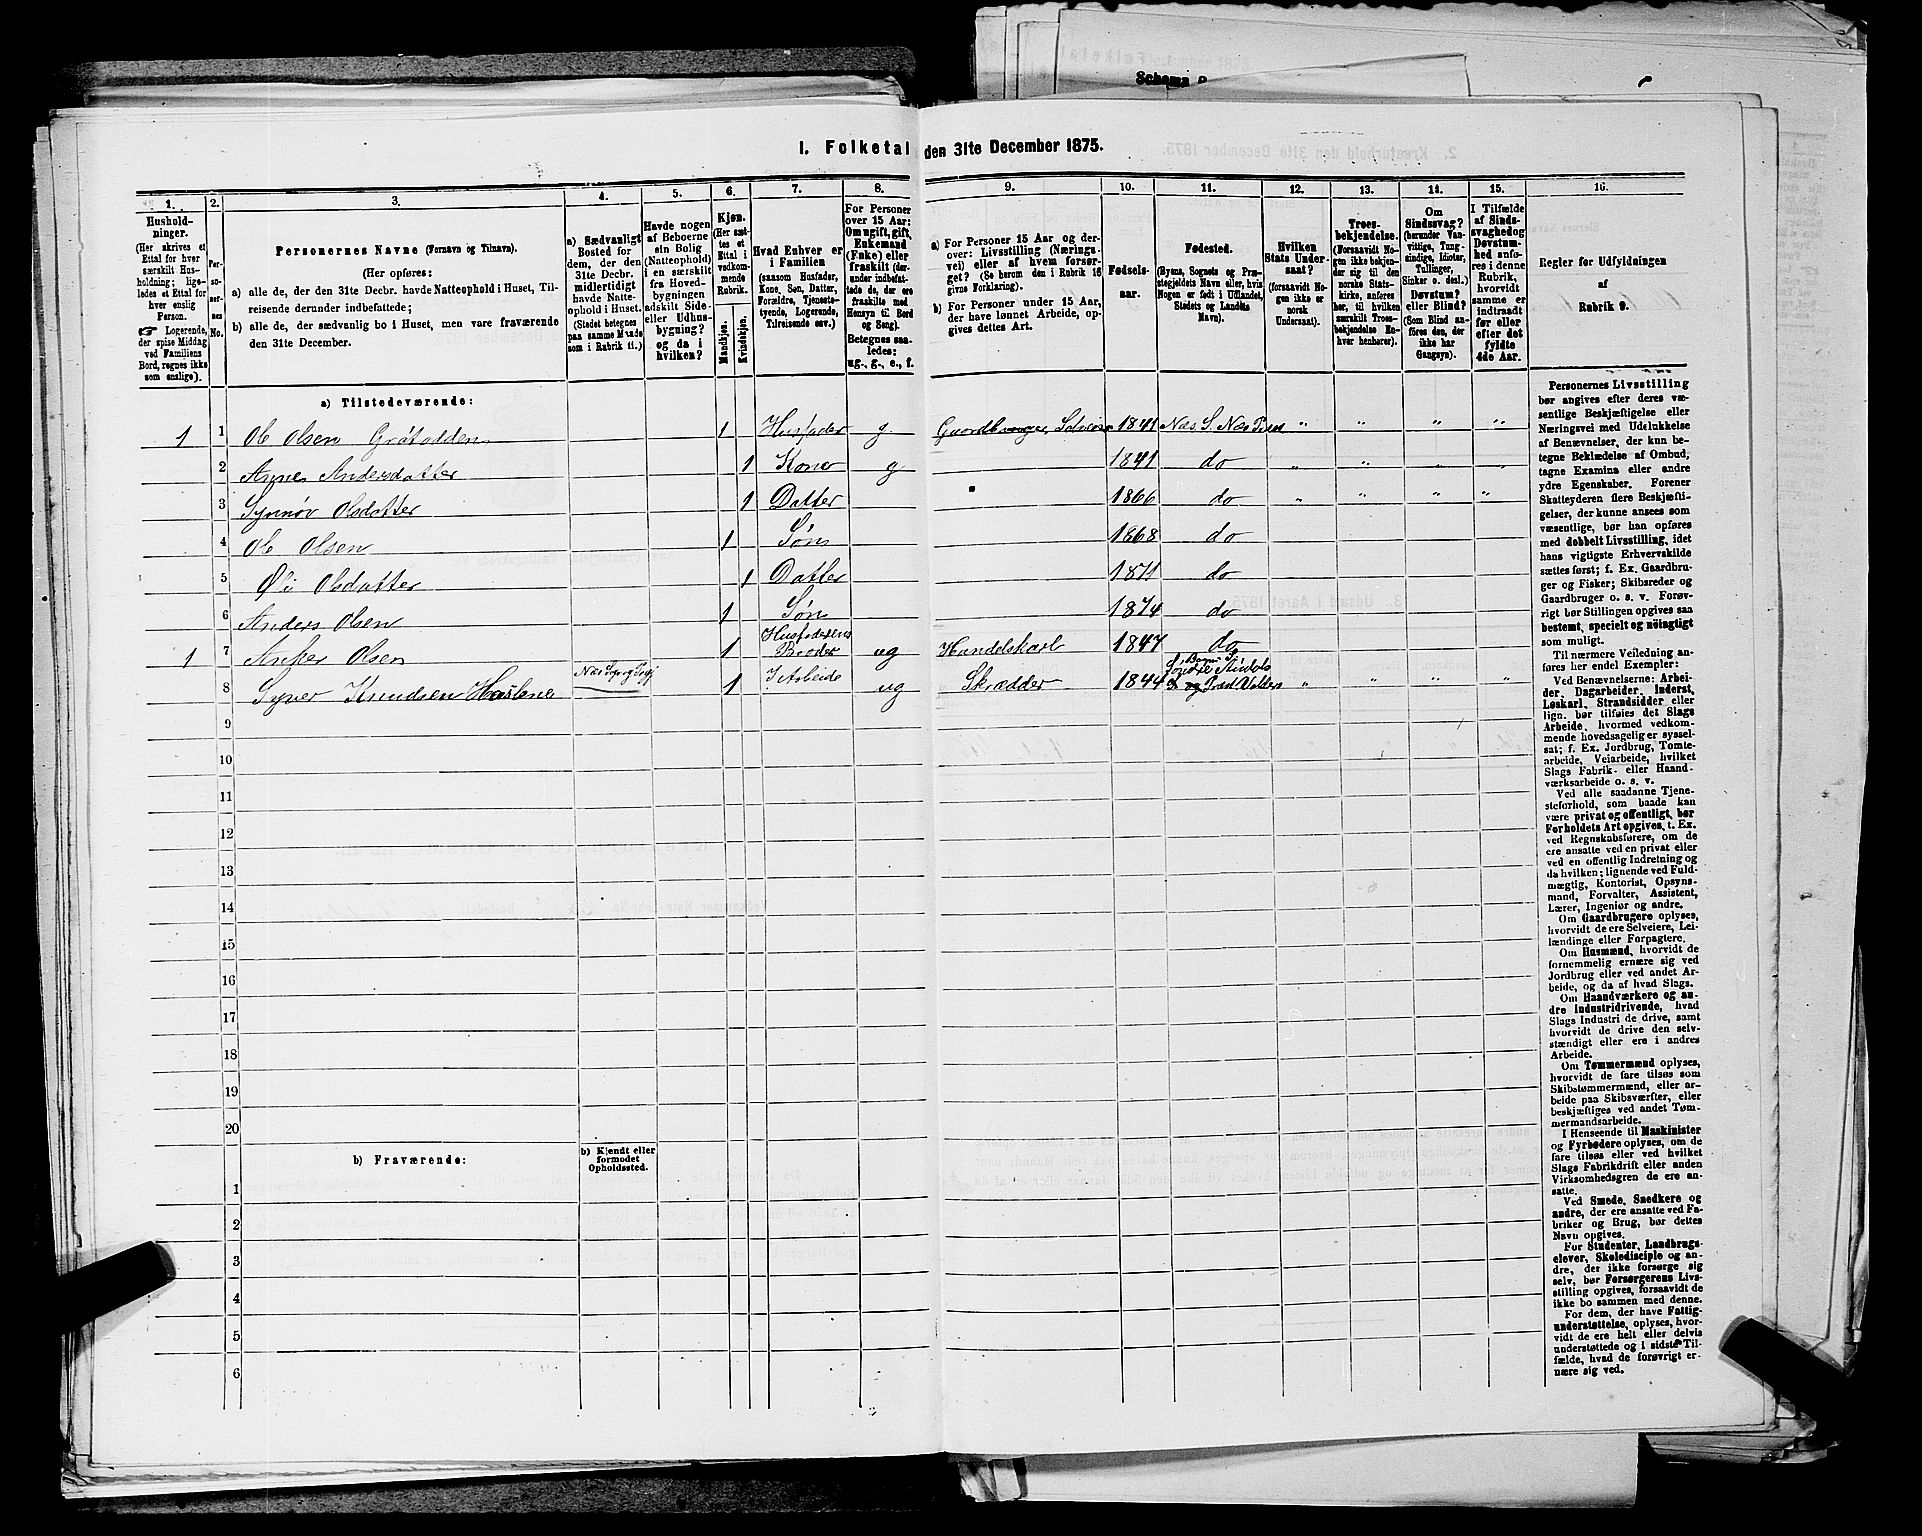 Schema
1. Folketal den 31te December 1875.
1. 2. 3. 4. 5. 6. 7. 8. 9. 10. 11. 12. 13. 14. 15. 16.
Hushold-
ninger.
(Her skrives et
Ettal for hver
særskilt Hus-
holdning; lige-
ledes et Ettal for
hver enslig
Person.
☞ Logerende,
der spise Middag
ved Familiens
Bord, regnes ikke
som enslige).
Per-
so-
ner-
nes
No.
Personernes Navne (Fornavn og Tilnavn).
(Her opføres:
a) alle de, der den 31te Decbr. havde Natteophold i Huset, Til-
reisende derunder indbefattede;
b) alle de, der sædvanlig bo i Huset, men vare fraværende
den 31te December.
a) Sædvanligt
Bosted for
dem, der den
31te Decbr.
midlertidigt
havde Natte-
ophold i Huset.
(Stedet betegnes
paa samme Maade
som i Rubrik 11.)
Havde nogen
af Beboerne
sin Bolig
(Natteophold)
i en særskilt
fra Hoved-
bygningen
adskilt Side-
eller Udhus-
bygning?
og da i
hvilken?
Kjøn.
(Her sæt-
tes et
Ettal i
vedkom-
mende
Rubrik.
Mandkjøn.
Kvindekjøn.
Hvad Enhver er
i Familien
(saasom Husfader,
Kone, Søn, Datter,
Forældre, Tjeneste-
tyende, Logerende,
Tilreisende osv.)
For Personer
over 15 Aar:
Om ugift, gift,
Enkemand
(Enke) eller
fraskilt (der-
under indbefat-
tede de, der ere
fraskilte med
Hensyn til Bord
og Seng).
Betegnes saa-
ledes:
ug., g., e., f.
a) For Personer 15 Aar og der-
over: Livsstilling (Nærings-
vei) eller af hvem forsør-
get? (Se herom den i Rubrik 16
givne Forklaring).
b) For Personer under 15 Aar,
der have lønnet Arbeide, op-
gives dettes Art.
Fødsels-
aar.
Fødested.
(Byens, Sognets og Præ-
stegjeldets Navn eller, hvis
Nogen er født i Udlandet,
Stedets og Landets
Navn).
Hvilken
Stats Under-
saat?
(forsaavidt No-
gen ikke er
norsk
Undersaat).
Troes-
bekjendelse.
(Forsaavidt No-
gen ikke bekjen-
der sig til den
norske Stats-
kirke, anføres
her, til hvilken
særskilt Troes-
bekjendelse En-
hver henhører).
Om
Sindssvag?
(herunder Van-
vittige, Tung-
sindige, Idioter,
Tullinger,
Sinker o. desl.)
Døvstum?
eller Blind?
(Som Blind an-
føres den, der
ikke har
Gangsyn).
I Tilfælde
af Sinds-
svaghed og
Døvstum-
hed anfø-
res i denne
Rubrik,
hvorvidt
samme er
indtraadt
før eller
efter det
fyldte
4de Aar.
Regler for Udfyldningen
af
Rubrik 9.
a) Tilstedeværende:
1 1 Ole Olsen Grøtodden 1 Husfader g. Gaardbruger, Selveier 1841 Næs S. Næs Præst " " " "
2 Agnes Andersdatter 1 Kone g 1841 do " " " "
3 Synnøv Olsdatter 1 Datter 1866 do " " " "
4 Ole Olsen 1 Søn 1868 do
5 Øli Olsdatter 1 Datter 1871 do
6 Anders Olsen 1 Søn 1874 do
1 7 Anker Olsen 1 Husfaderens Broder ug Handelskarl 1847 do
8 Syver Knudsen Haslene 1 I Arbeide ug Skrædder 1844 " " " "
9
10
11
12
13
14
15
16
17
18
19
20
b) Fraværende:
b) Kjendt eller
formodet
Opholdssted.
1
2
3
4
5
6
Personernes Livsstilling
bør angives efter deres væ-
sentlige Beskjæftigelse eller
Næringsvei med Udelukkelse
af Benævnelser, der kun be-
tegne Beklædelse af Ombud,
tagne Examina eller andre
ydre Egenskaber. Forener
Skatteyderen flere Beskjæfti-
gelser, der kunne ansees som
væsentlige, bør han opføres
med dobbelt Livsstilling, idet
hans vigtigste Erhvervskilde
sættes først; f. Ex. Gaardbru-
ger og Fisker; Skibsreder og
Gaardbruger o. s. v. Forøv-
rigt bør Stillingen opgives saa
bestemt, specielt og nöiagtigt
som muligt.
Til nærmere Veiledning an-
føres her endel Exempler:
Ved Benævnelserne: Arbei-
der, Dagarbeider, Inderst,
Løskarl, Strandsidder eller
lign. bør tilføies det Slags
Arbeide, hvormed vedkom-
mende hovedsagelig er syssel-
sat; f. Ex. Jordbrug, Tomte-
arbeide, Veiarbeide, hvilket
Slags Fabrik- eller Haand-
værksarbeide o. s. v.
Ved alle saadanne Tjene-
steforhold, som baade kan
være privat og offentligt, bør
Forholdets Art opgives, t. Ex.
ved Regnskabsførere, om de
ere ansatte ved en privat eller
ved en offentlig Indretning og
da hvilken; lignende ved Fuld-
mægtig, Kontorist, Opsyns-
mand, Forvalter, Assistent,
Lærer, Ingeniør og andre.
Om Gaardbrugere oplyses,
hvorvidt de ere Selveiere, Lei-
lændinge eller Forpagtere.
Om Husmænd, hvorvidt de
fornemmelig ernære sig ved
Jordbrug eller ved andet Ar-
beide, og da af hvad Slags.
Om Haandværkere og an-
dre Industridrivende, hvad
Slags Industri de drive, samt
hvorvidt de drive den selv-
stændigt eller ere i andres
Arbeide.
Om Tømmermænd oplyses,
hvorvidt de fare tilsøs som
Skibstømmermænd, eller ar-
beide paa Skibsværfter, eller
beskjæftiges ved andet Tøm-
mermandsarbeide.
I Henseende til Maskinister
og Fyrbødere oplyses, om de
fare tilsøs eller ved hvilket
Slags Fabrikdrift eller anden
Virksomhedsgren de ere an-
satte.
Ved Smede, Snedkere og
andre, der ere ansatte ved Fa-
briker og Brug, bør dettes
Navn opgives.
For Studenter, Landbrugs-
elever, Skoledisciple og an-
dre, der ikke forsørge sig
selv, bør Forsørgerens Livs-
stilling opgives, forsaavidt de
ikke bo sammen med denne.
For dem, der have Fattig-
understøttelse, oplyses, hvor-
vidt de ere helt eller delvis
understøttede og i sidste Til-
fælde, hvad de forøvrigt er-
nære sig ved.